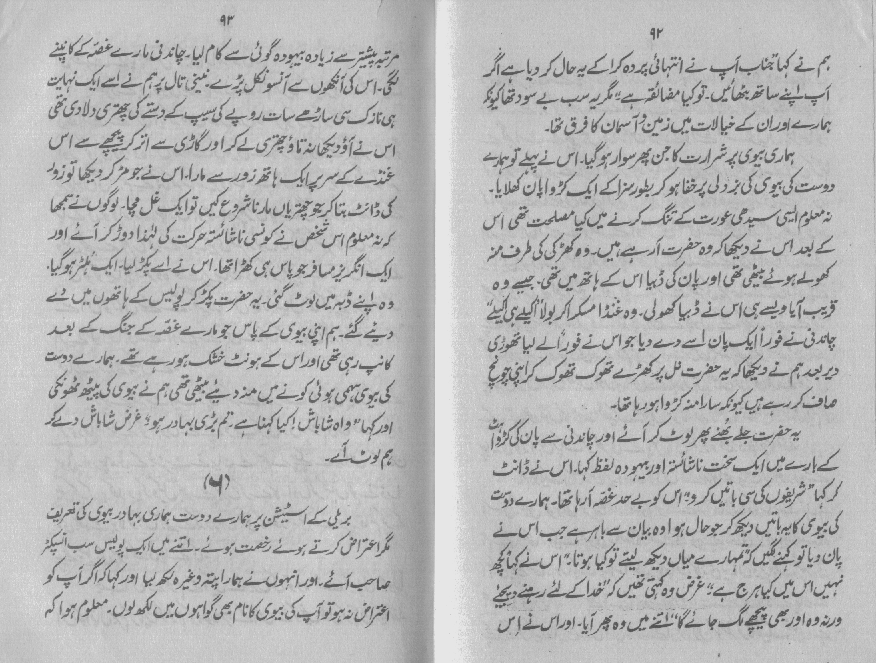 ۹۲
ہم نے کہا جناب آپ نے انتہائی پردہ کرا کے یہ حال کر دیا ہے اگر
آپ اپنے ساتھ بٹھائیں۔ تو کیا مضائقہ ہے" مگر یہ سب بے سود تھا کیونکہ
ہمارے اور ان کے خیالات میں زمین و آسمان کا فرق تھا۔
ہماری بیوی پر شرارت کا جن پھر سوار ہو گیا۔ اس نے پہلے تو ہمارے
دوست کی بیوی کی بزدلی پر خفا ہو کر بطور سزا کے ایک کڑوا پان کھلایا۔
نہ معلوم ایسی سیدھی عورت کے تنگ کرنے میں کیا مصلحت تھی اس
کے بعد اس نے دیکھا کہ وہ حضرت آ رہے ہیں۔ وہ کھڑکی کی طرف منہ
کھولے ہوئے بیٹھی تھی اور پان کی ڈبیا اس کے ہاتھ میں تھی۔ جیسے وہ
قریب آیا ویسے ہی اس نے ڈبیا کھولی۔ وہ غنڈا مسکرا کر بولا "اکیلے ہی اکیلے"
چاندنی نے فوراً ایک پان اسے دے دیا جو اس نے فوراً لے لیا تھوڑی
دیر بعد ہم نے دیکھا کہ یہ حضرت نل پر کھڑے تھوک تھوک کر اپنی چونچ
صاف کر رہے ہیں کیونکہ سارا منہ کڑوا ہو رہا تھا۔
یہ حضرت جلے بھنے پھر لوٹ کر آئے اور چاندنی سے پان کی کڑواہٹ
کے بارے میں ایک سخت ناشائستہ اور بیہودہ لفظ کہا۔ اس نے ڈانٹ
کر کہا "شریفوں کی سی باتیں کرو" اس کو بے حد غصہ آ رہا تھا۔ ہمارے دوست
کی بیوی کا یہ باتیں دیکھ کر جو حال ہوا وہ بیان سے باہر ہے جب اس نے
پان دیا تو کہنے لگیں کہ "تمہارے میاں دیکھ لیتے تو کیا ہوتا۔" اس نے کہا "کچھ
نہیں اس میں کیا ہرج ہے" غرض وہ کہتی تھیں کہ "خدا کے لئے رہنے دیجئے
ورنہ وہ اور بھی پیچھے لگ جائے گا" اتنے میں وہ پھر آیا۔ اور اس نے اس
۹۳
مرتبہ پیشتر سے زیادہ بیہودہ گوئی سے کام لیا۔ چاندنی مارے غصہ کے کانپنے
لگی۔ اس کی آنکھوں سے آنسو نکل پڑے۔ نینی تال پر ہم نے اسے ایک نہایت
ہی نازک سی ساڑھے سات روپے کی سیپ کے دستے کی چھتری دلا دی تھی
اس نے آؤ دیکھا نہ تاؤ چھتری لے کر اور گاڑی سے اتر کر پیچھے سے اس
غنڈے کے سر پر ایک ہاتھ زور سے مارا۔ اس نے جو مڑ کر دیکھا تو زور
کی ڈانٹ بتا کر جو چھتریاں مارنا شروع کیں تو ایک غل مچا۔ لوگوں نے سمجھا
کہ نہ معلوم اس شخص نے کونسی ناشائستہ حرکت کی لہٰذا دوڑ کر آئے اور
ایک انگریز مسافر جو پاس ہی کھڑا تھا۔ اس نے اسے پکڑ لیا۔ ایک ہلڑ ہو گیا۔
وہ اپنے ڈبہ میں لوٹ گئی۔ یہ حضرت پکڑ کر پولیس کے ہاتھوں میں دے
دیئے گئے۔ ہم اپنی بیوی کے پاس جو مارے غصہ کے جنگ کے بعد
کانپ رہی تھی اور اس کے ہونٹ خشک ہو رہے تھے۔ ہمارے دوست
کی بیوی سہمی ہوئی کونے میں منہ دیئے بیٹھی تھی ہم نے بیوی کی پیٹھ ٹھونکی
اور کہا "واہ شاباش! کیا کہنا ہے۔ تم بڑی بہادر ہو" غرض شاباش دے کر
ہم لوٹ آئے۔
(۶)
بریلی کے اسٹیشن پر ہمارے دوست ہماری بہادر بیوی کی تعریف
مگر اعتراض کرتے ہوئے رخصت ہوئے۔ اتنے میں ایک پولیس سب انسپکٹر
صاحب آئے۔ اور انہوں نے ہمارا پتہ وغیرہ لکھ لیا اور کہا کہ اگر آپ کو
اعتراض نہ ہو تو آپ کی بیوی کا نام بھی گواہوں میں لکھ لوں۔ معلوم ہوا کہ